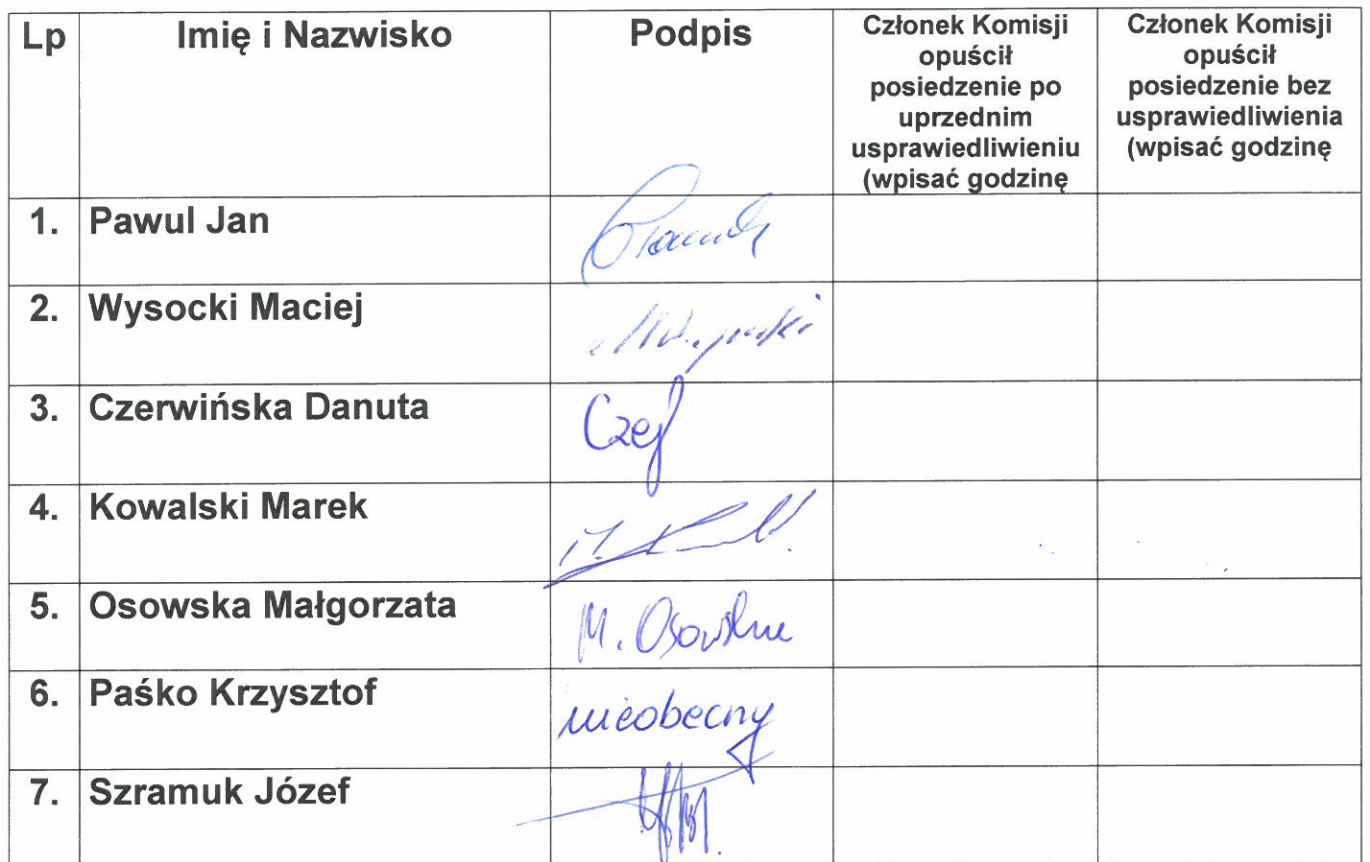 Lp Imię i Nazwisko Podpis Członek Komisji opuścił posiedzenie po uprzednim usprawiedliwieniu (wpisać godzinę Członek Komisji opuścił posiedzenie bez usprawiedliwienia (wpisać godzinę
1. Pawul Jan
2. Wysocki Maciej
3. Czerwińska Danuta
4. Kowalski Marek
5. Osowska Małgorzata M. Osowska
6. Paśko Krzysztof nieobecny
7. Szramuk Józef